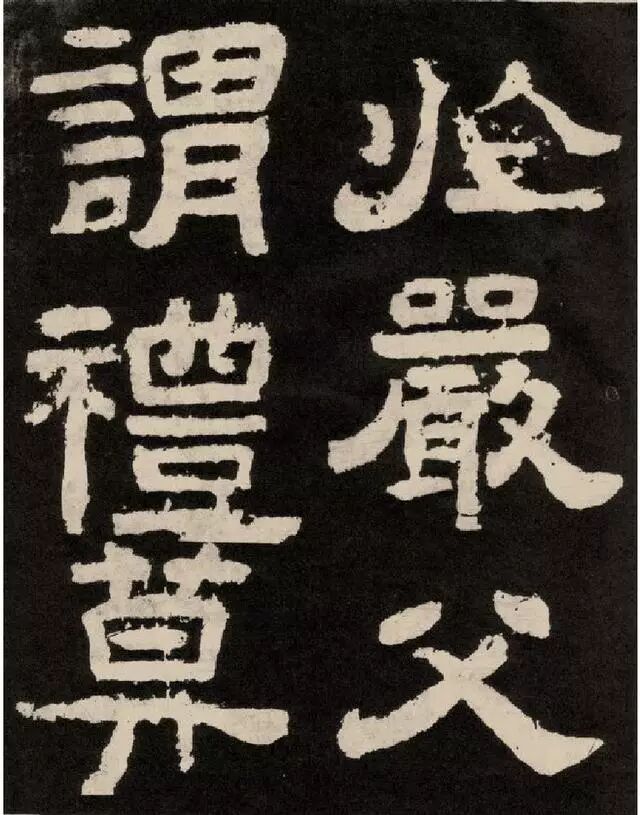 於嚴父
謂禮莫